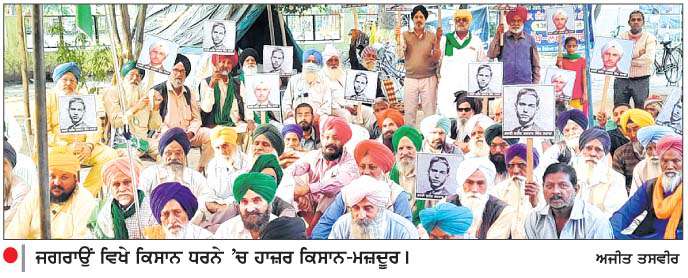 ਜਗਰਾਉਂ ਵਿਖੇ ਕਿਸਾਨ ਧਰਨੇ 'ਚ ਹਾਜ਼ਰ ਕਿਸਾਨ-ਮਜ਼ਦੂਰ। ਅਜੀਤ ਤਸਵੀਰ